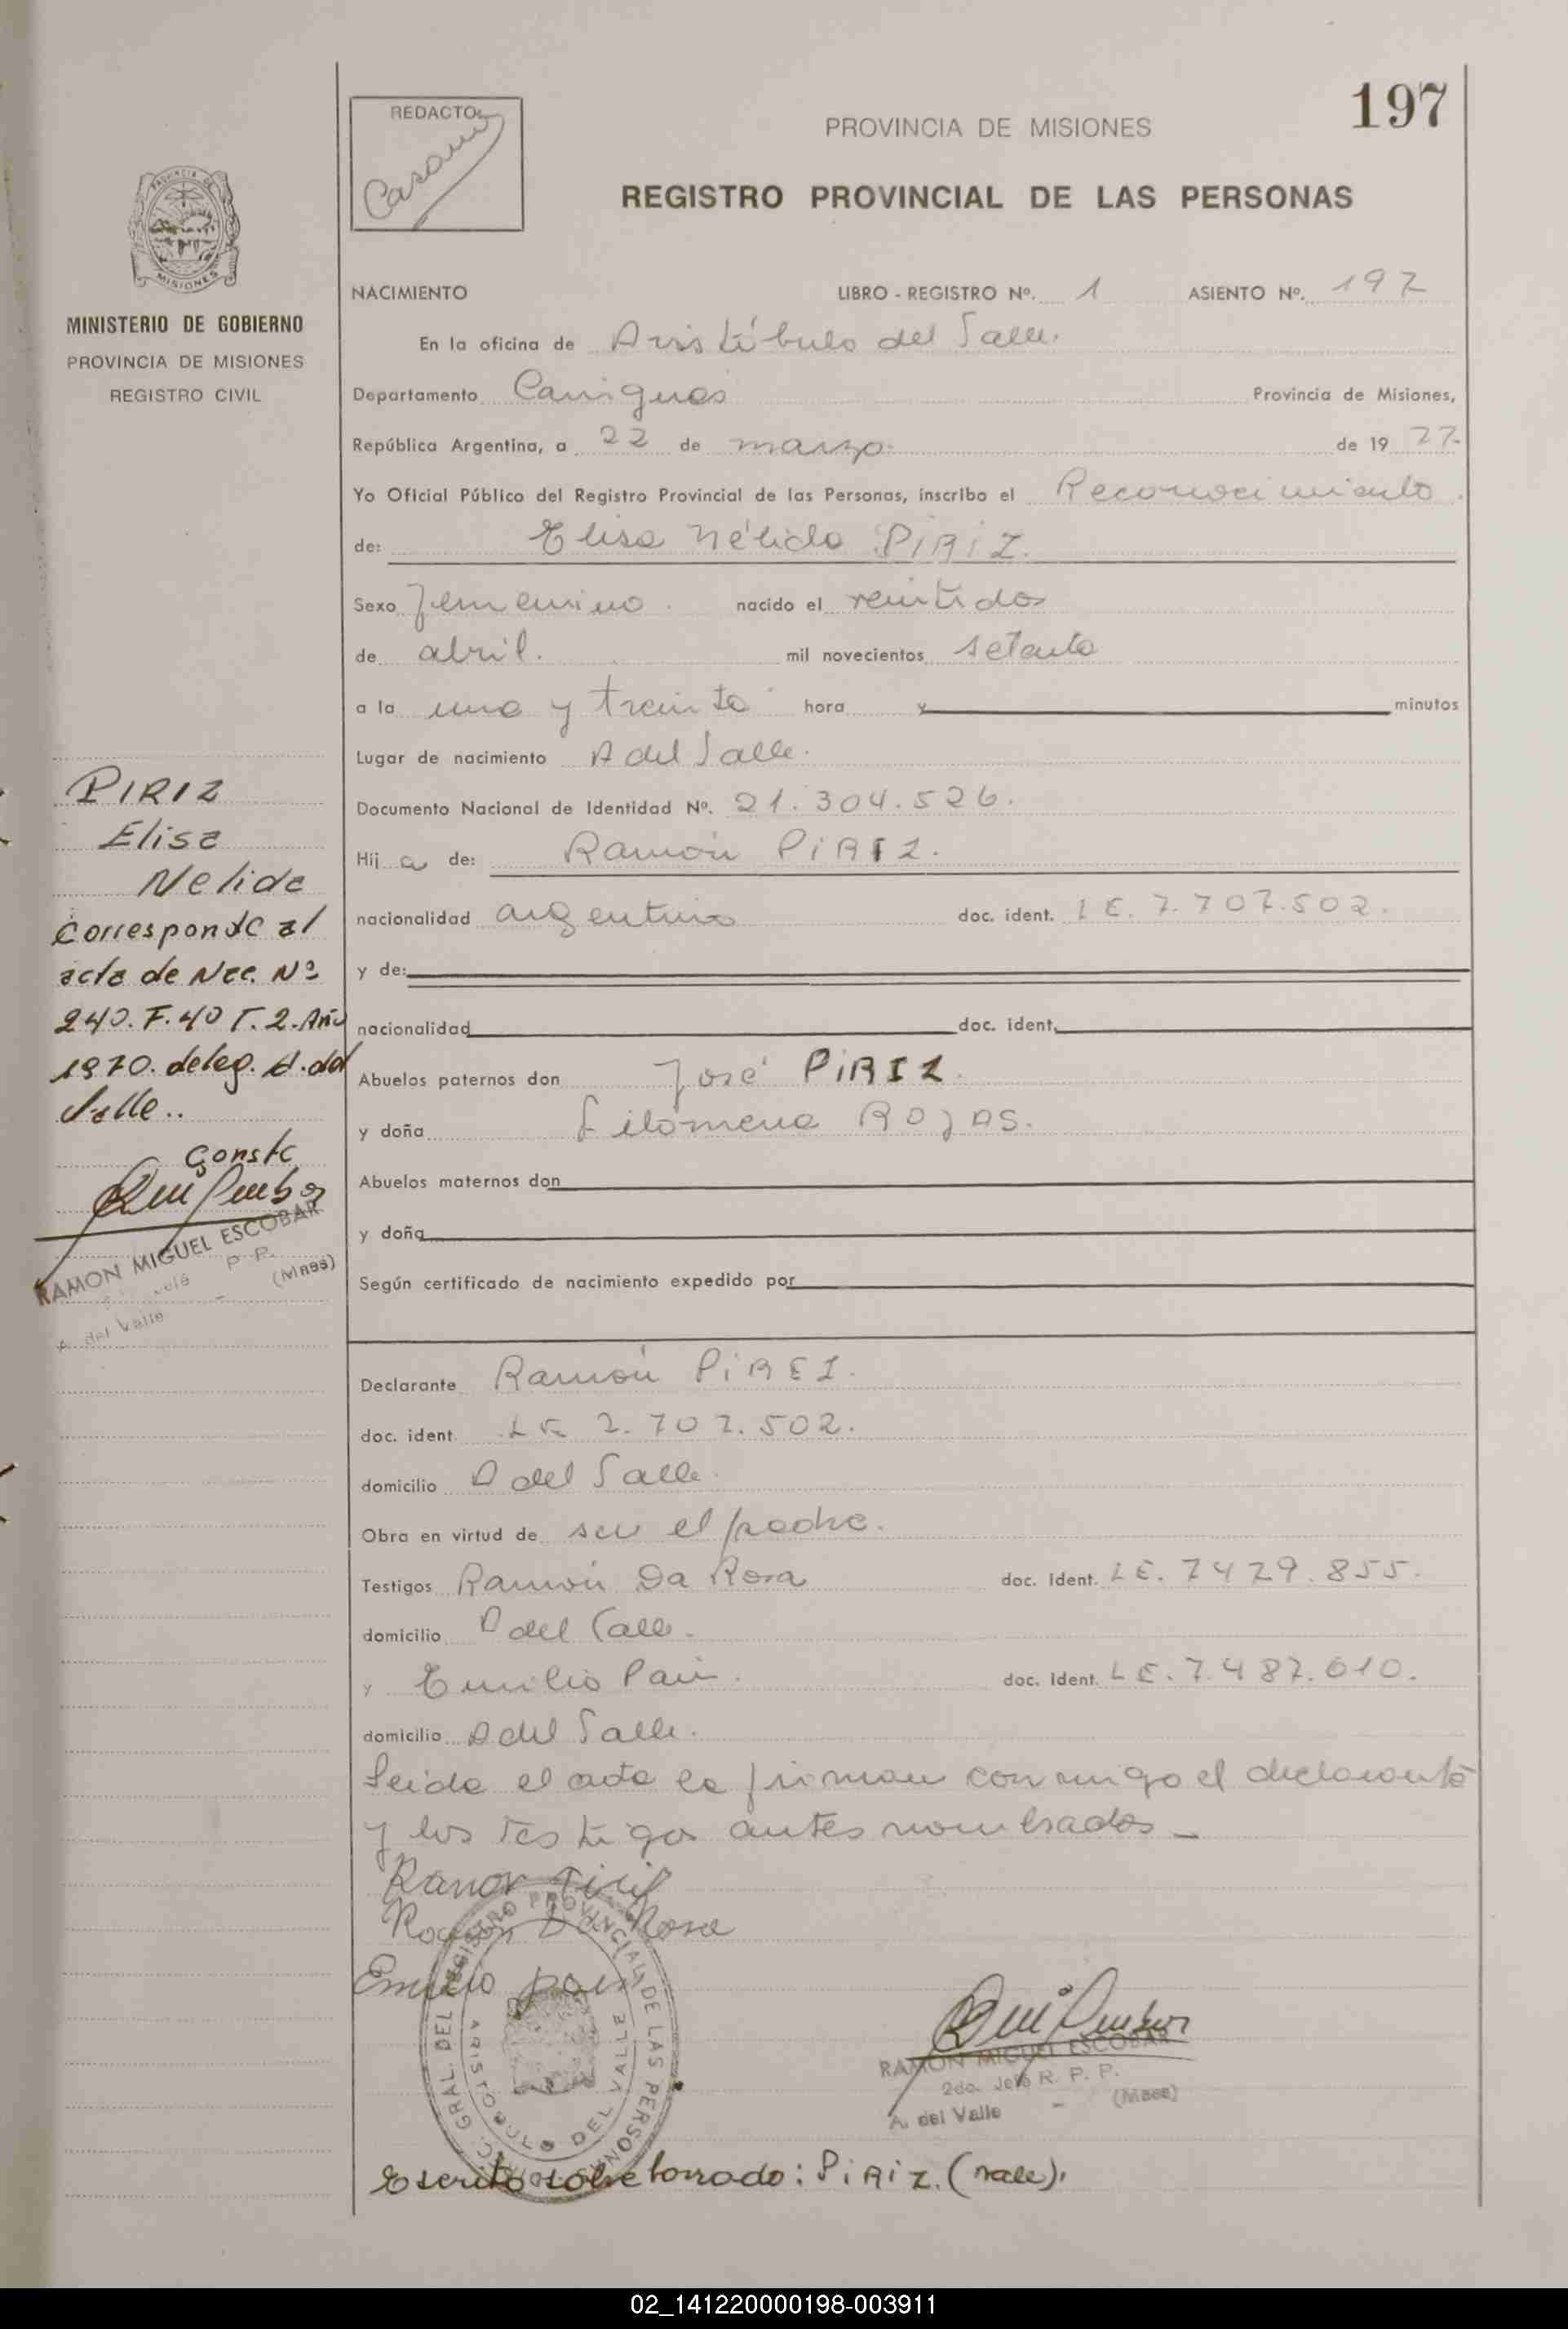 197
REDACTO
PROVINCIA DE MISIONES
REGISTRO PROVINCIAL DE LAS PERSONAS
MINISTERIO DE GOBIERNO
PROVINCIA DE MISIONES
REGISTRO CIVIL
NACIMIENTO LIBRO - REGISTRO Nº. 1 ASIENTO Nº. 197
En la oficina de Aristóbulo del Valle.
Departamento Cainguas Provincia de Misiones,
República Argentina, a 22 de marzo de 19 77
Yo Oficial Público del Registro Provincial de las Personas, inscribo el Reconocimiento
de: Elisa Nélida PIRIZ.
Sexo femenino. nacido el veintidos
de abril. mil novecientos setenta
a la una y treinta hora y minutos
Lugar de nacimiento A del Valle.
Documento Nacional de Identidad Nº. 21.304.526.
Hij a de: Ramón PIRIZ.
nacionalidad argentino doc. ident. LE. 7.707.502.
y de:
nacionalidad doc. ident.
Abuelos paternos don José PIRIZ.
y doña Filomena ROJAS.
Abuelos maternos don
y doña
Según certificado de nacimiento expedido por
PIRIZ
Elisa
Nelida
Corresponde al
acta de Nac. Nº
240. F. 40 T. 2. Año
1970. deleg. A. del
Valle..
Conste
RAMON MIGUEL ESCOBAR
P. P.
A. del Valle (Mnes)
Declarante Ramón PIREZ.
doc. ident. LE 7.707.502.
domicilio A del Valle.
Obra en virtud de ser el padre.
Testigos Ramón Da Rosa doc. Ident. LE. 7429.855.
domicilio A del Valle.
y Emilio Pain. doc. Ident. LE. 7.487.610.
domicilio A del Valle.
Leida el acta la firman conmigo el declarante
y los testigos antes nombrados _
Ramon
Ramon Da Rosa
Emilio pain
GRAL. DEL REGISTRO PROVINCIAL DE LAS PERSONAS
ARISTOBULO DEL VALLE
RAMON MIGUEL ESCOBAR
2do. Jefe R. P. P.
A. del Valle - (Mnes)
Escrito sobre borrado: PIRIZ. (vale).
02_141220000198-003911